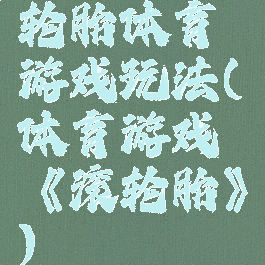 轮胎体育
游戏玩法(
体育游戏
《滚轮胎》
)